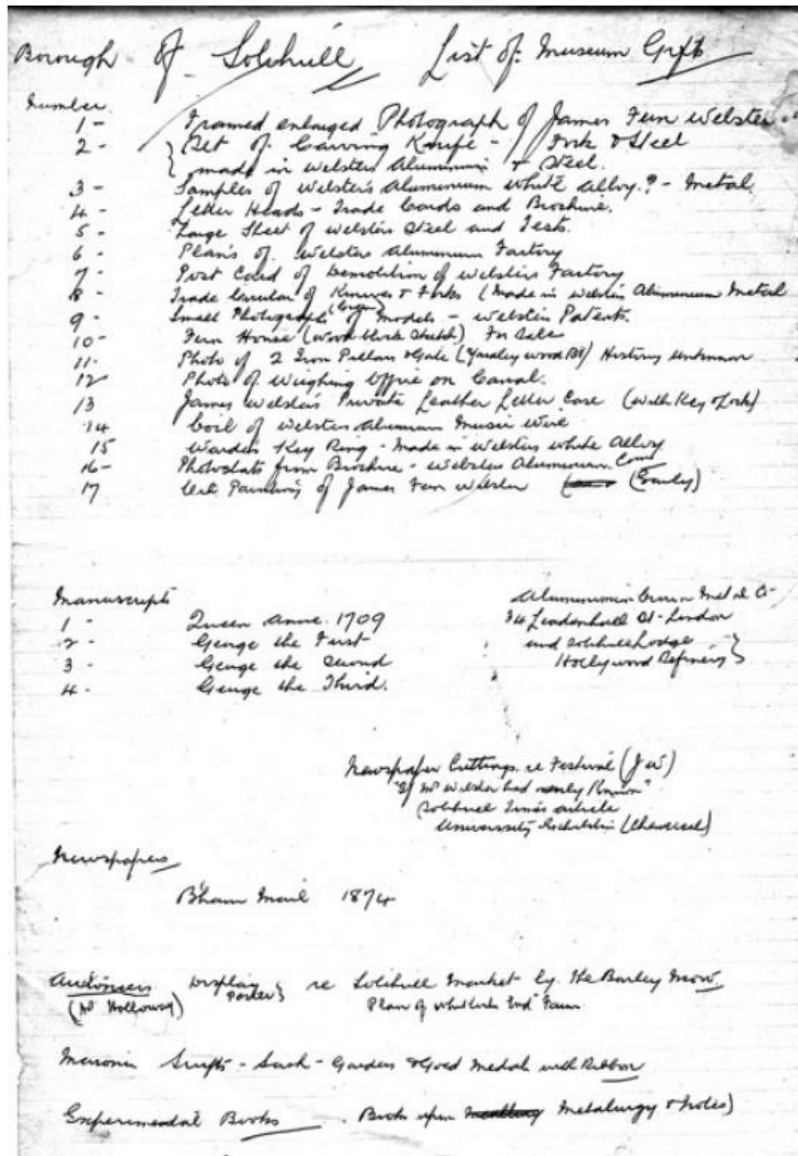 Borough of Solihull List of Museum Gifts
Number
1- Framed enlarged Photograph of James Fern Webster
2- Set of Carving Knife - Fork & Steel
made in Websters Aluminium & Steel.
3- Samples of Websters Aluminium white alloy.? - Metal
4- Letter Heads - Trade Cards and Brochure.
5- Large Sheet of Websters Steel and Tests.
6- Plans of Websters Aluminium Factory
7- Post Card of Demolition of Websters Factory
8- Trade Circular of Knives & Forks (Made in Websters Aluminium Metal
9- Small Photographs of Models - Websters Patents.
10- Fern House (Wood block Sketch) For Sale
11- Photo of 2 Iron Pillars & Gate (Yardley Wood Rd) History unknown
12 Photo of Weighing Office on Canal.
13 James Websters Private Leather Letter Case (with Key & Lock)
14 Coil of Websters Aluminium Music Wire
15 Wardens Key Ring - Made in Websters white Alloy
16- Photostats from Brochure - Websters Aluminium Comp
17 Oil Painting of James Fern Webster (Early)
Manuscripts
1- Queen Anne. 1709
2- George the First
3- George the Second
4- George the Third.
Aluminium Crown Metal Co
34 Leadenhall St - London
and Solihull Lodge
Hollywood Refinery
Newspaper Cuttings. re Festival (JW)
"If Mr Webster had only Known"
Solihull Times article
University (Chemical)
Newspapers
B'ham Mail 1874
Auctioneers Display Poster re Solihull Market by The Barley Mow
(Mr Holloway) Plan of Whitlocks End Farm
Masonic - Sash - & Gold Medals with Ribbon
Experimental Books. Books upon Metalurgy & Notes)